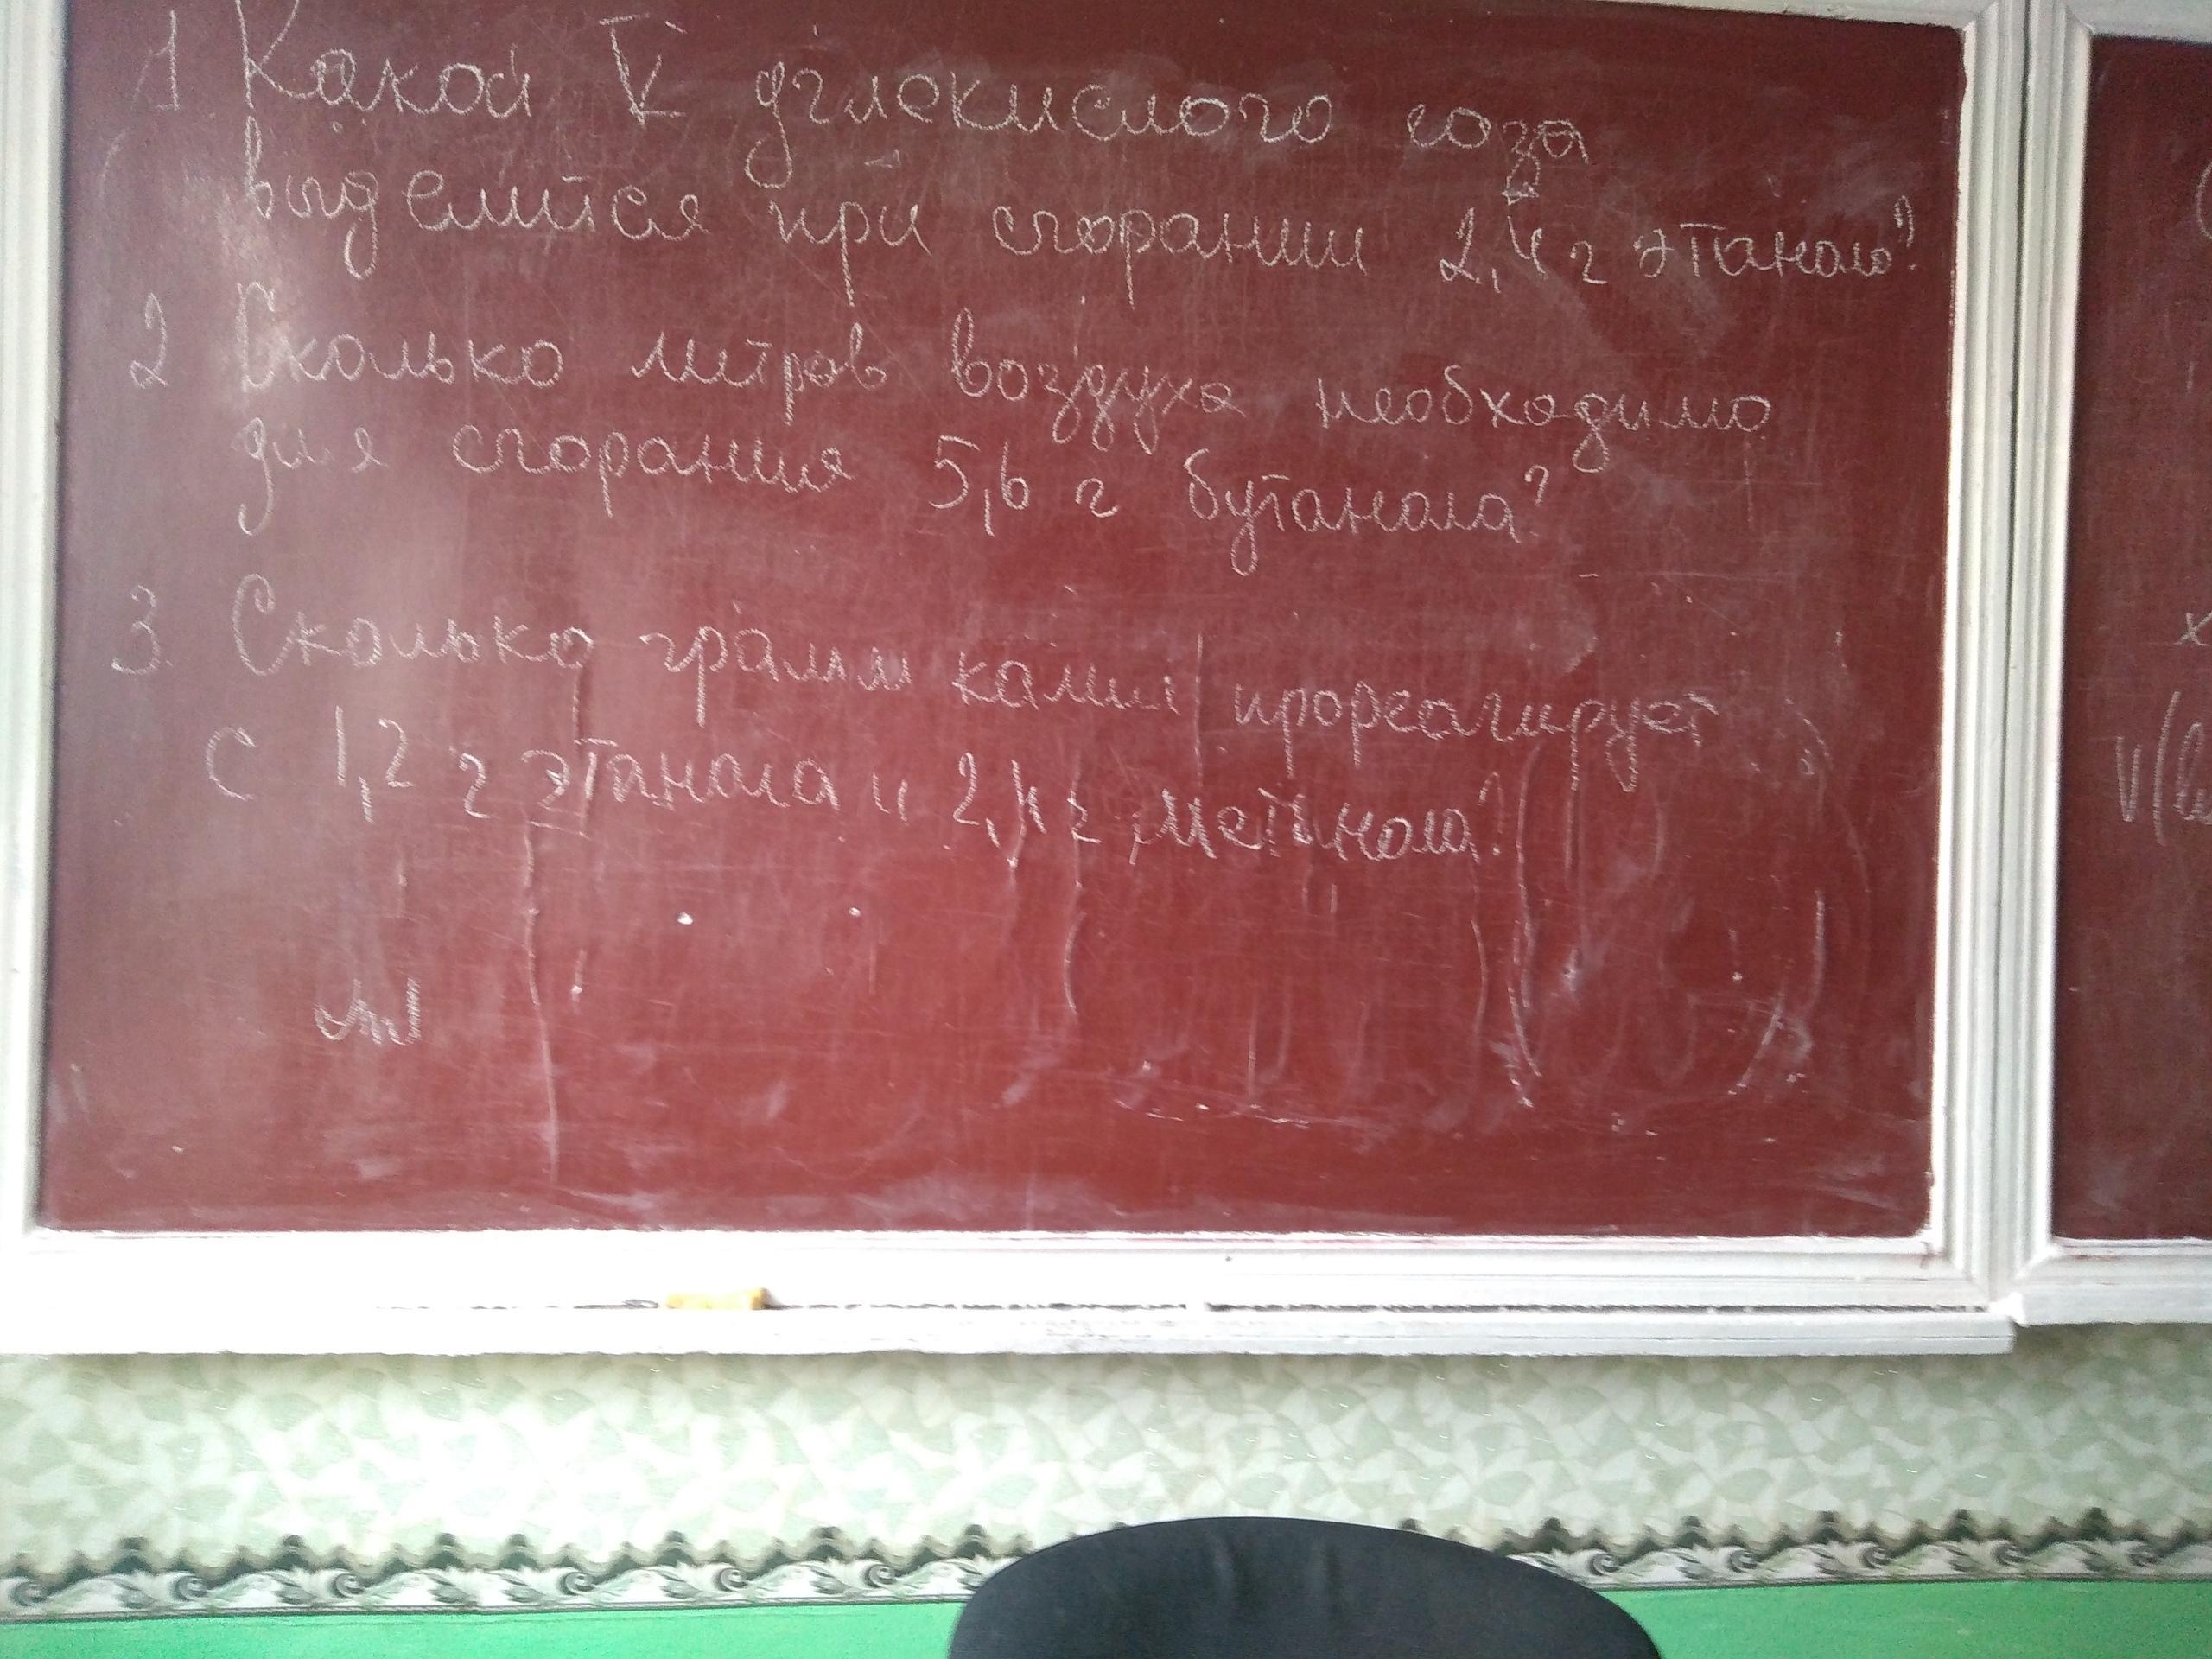 1 Какой V углекислого газа
выделится при сгорании 2,4 г этанола?
2 Сколько литров воздуха необходимо
для сгорания 5,6 г бутанола?
3. Сколько грамм калия прореагирует
с 1,2 г этанола и 2,4 г метанола?